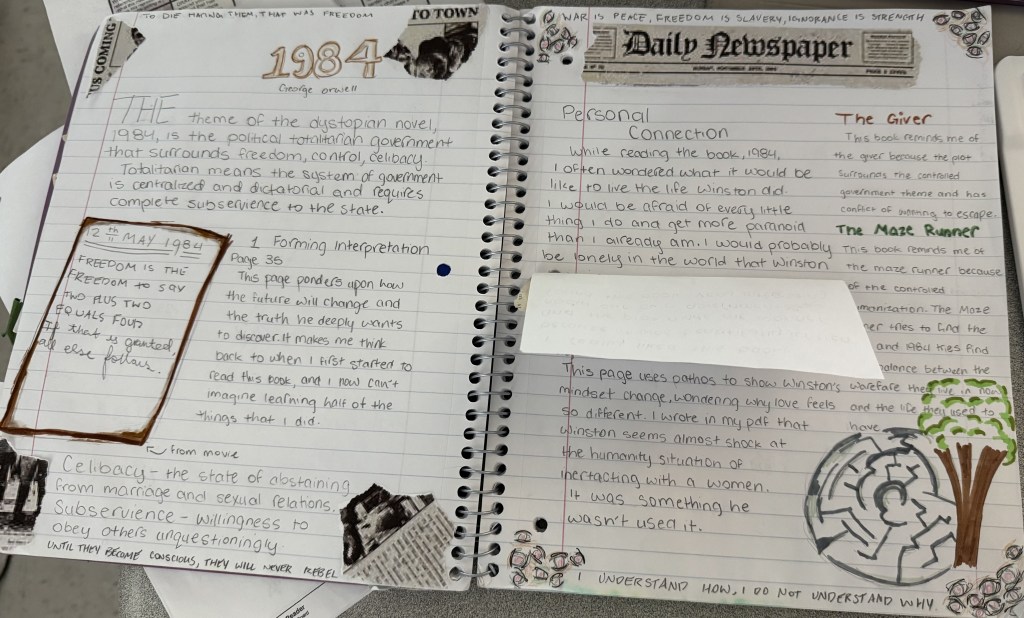 TO DIE HATING THEM, THAT WAS FREEDOM
US COMING
TO TOWN
1984
George orwell
THE theme of the dystopian novel,
1984, is the political totalitarian government
that surrounds freedom, control, celibacy.
Totalitarian means the system of government
is centralized and dictatorial and requires
complete subservience to the state.
12th MAY 1984
FREEDOM IS THE
FREEDOM to SAY
TWO PLUS TWO
EQUALS FOUR
If that is granted,
all else follows.
from movie
1 Forming Interpretation
Page 35
This page ponders upon how
the future will change and
the truth he deeply wants
to discover. It makes me think
back to when I first started to
read this book, and I now can't
imagine learning half of the
things that I did.
Celibacy - the state of abstaining
from marriage and sexual relations.
Subservience - willingness to
obey others unquestioningly.
UNTIL THEY BECOME CONSCIOUS, THEY WILL NEVER REBEL
WAR IS PEACE, FREEDOM IS SLAVERY, IGNORANCE IS STRENGTH
Daily Newspaper
Personal
Connection
While reading the book, 1984,
I often wondered what it would be
like to live the life Winston did.
I would be afraid of every little
thing I do and get more paranoid
than I already am. I would probably
be lonely in the world that Winston
This page uses pathos to show Winston's
mindset change, wondering why love feels
so different. I wrote in my pdf that
Winston seems almost shock at
the humanity situation of
inertacting with a women.
It was something he
wasn't used it.
The Giver
This book reminds me of
the giver because the plot
surrounds the controlled
government theme and has
conflict of wanting to escape.
The Maze Runner
This book reminds me of
the maze runner because
of the controlled
The Maze
tries to find the
and 1984 tries find
between the
warefare they live in now
and the life they used to
have
I UNDERSTAND HOW, I DO NOT UNDERSTAND WHY
Reader